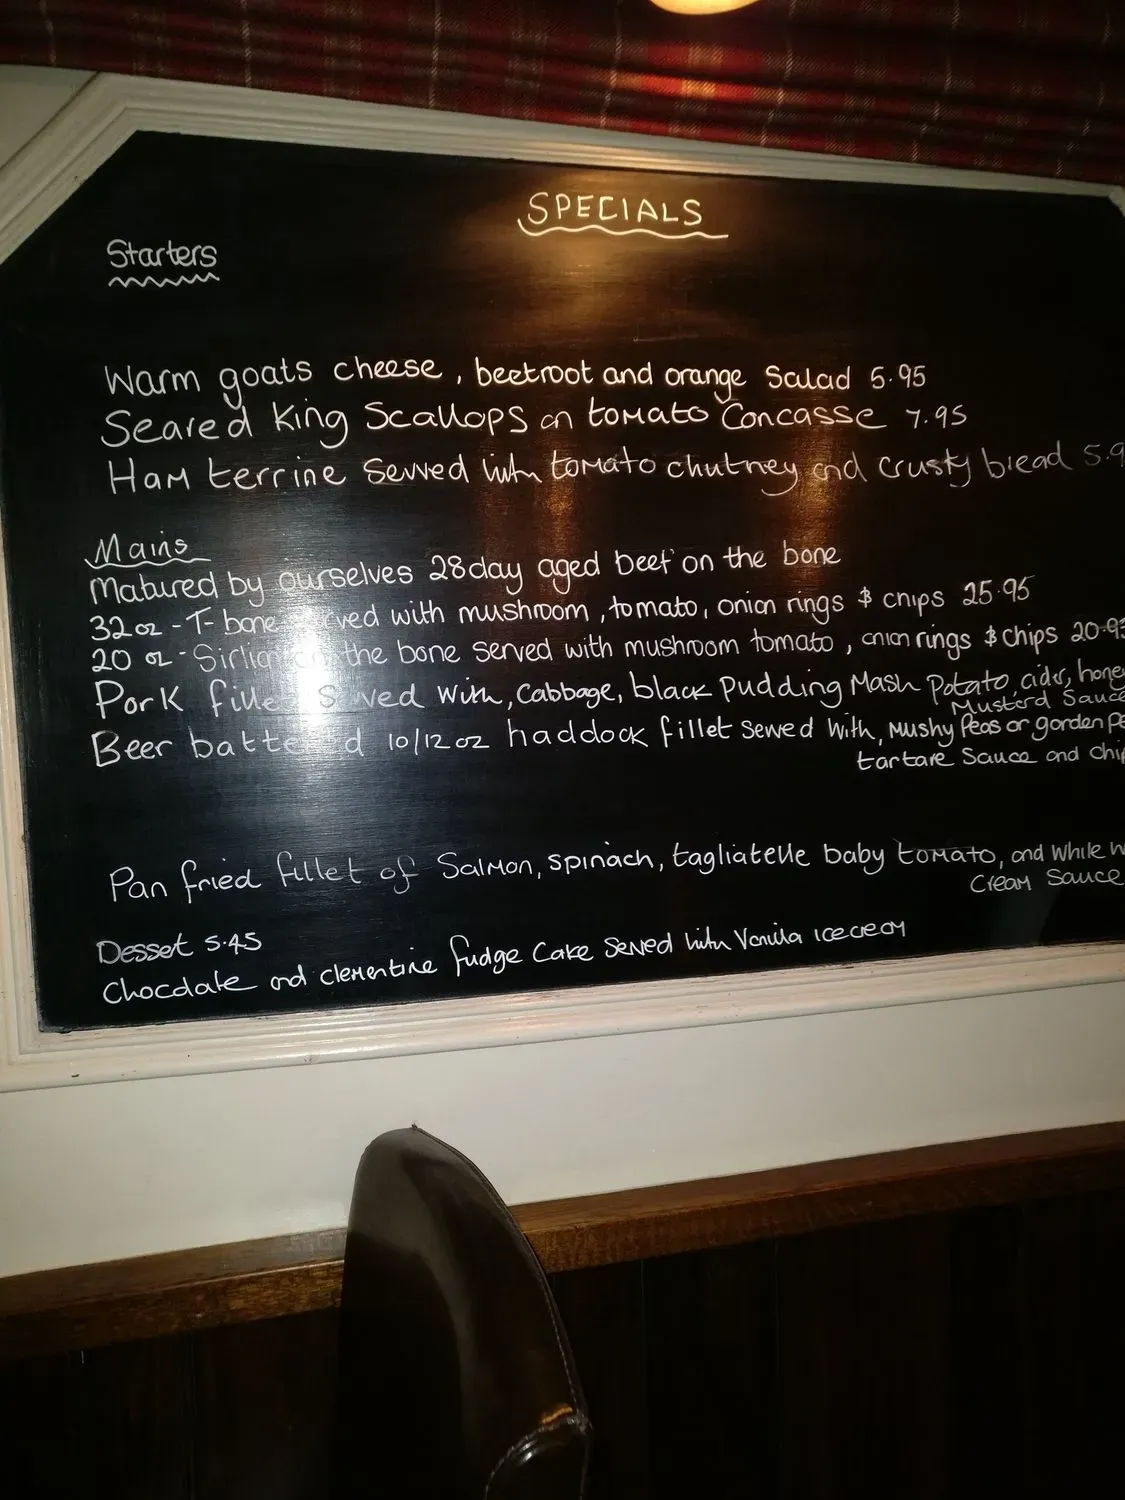 SPECIALS
Starters
Warm goats cheese, beetroot and orange Salad 5.95
Seared King Scallops on tomato Concasse 7.95
Ham terrine Served with tomato chutney and Crusty bread 5.9
Mains
Matured by ourselves 28day aged beef on the bone
32oz - T-bone served with mushroom, tomato, onion rings $ chips 25.95
20 oz - Sirlion on the bone served with mushroom tomato, onion rings $ chips 20.95
Pork fillet Served with, Cabbage, black Pudding Mash Potato, cider, honey
Musterd Sauce
Beer battered 10/12oz haddock fillet served with, mushy Peas or garden Pe
tartare Sauce and chip
Pan fried fillet of Salmon, spinach, tagliatelle baby tomato, and white w
Cream Sauce
Desset 5.45
Chocolate and clementine fudge Cake Served with Vanilla icecream